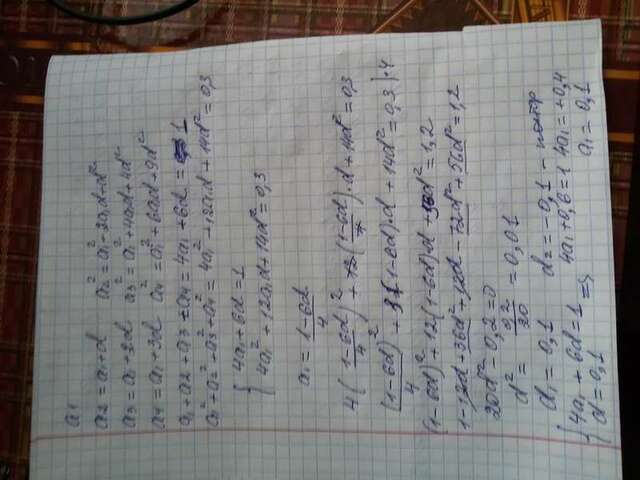 a₁
a₂ = a₁+d a₂² = a₁²+2a₁d+d²
a₃ = a₁+2d a₃² = a₁²+4a₁d+4d²
a₄ = a₁+3d a₄² = a₁²+6a₁d+9d²
a₁+a₂+a₃+a₄ = 4a₁+6d = 1
a₁²+a₂²+a₃²+a₄² = 4a₁²+12a₁d+14d² = 0,3
{ 4a₁+6d=1
4a₁²+12a₁d+14d²=0,3
a₁ = (1-6d)/4
4((1-6d)/4)² + 12((1-6d)/4)·d+14d²=0,3
(1-6d)²/4 + 3(1-6d)·d+14d²=0,3 |·4
(1-6d)²+12(1-6d)d+56d²=1,2
1-12d+36d²+12d-72d²+56d²=1,2
20d²-0,2=0
d² = 0,2/20 = 0,01
d₁=0,1 d₂=-0,1 -
{ 4a₁+6d=1 => 4a₁+0,6=1 4a₁=+0,4
d=0,1 a₁=0,1